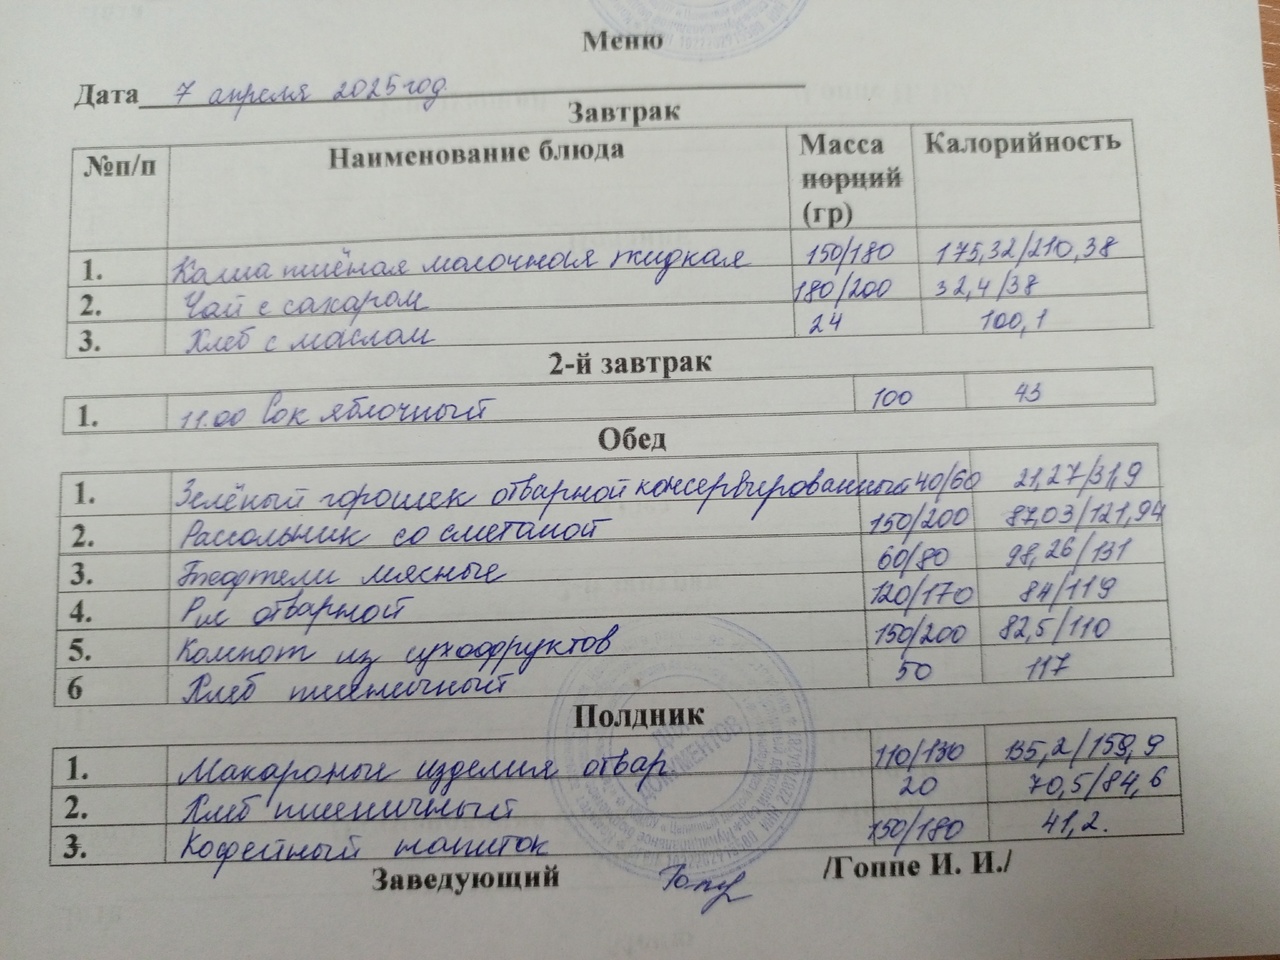 Меню
Дата 7 апреля 2025 год
Завтрак
№п/п Наименование блюда Масса порций (гр) Калорийность
1. Каша пшённая молочная жидкая 150/180 175,32/210,38
2. Чай с сахаром 180/200 32,4/38
3. Хлеб с маслом 24 100,1
2-й завтрак
1. 11.00 Сок яблочный 100 43
Обед
1. Зелёный горошек отварной консервированный 40/60 21,27/31,9
2. Рассольник со сметаной 150/200 87,03/121,94
3. Тефтели мясные 60/80 98,26/131
4. Рис отварной 120/170 84/119
5. Компот из сухофруктов 150/200 82,5/110
6 Хлеб пшеничный 50 117
Полдник
1. Макароные изделия отвар 110/130 135,2/159,9
2. Хлеб пшеничный 20 70,5/84,6
3. Кофейный напиток 150/180 41,2.
Заведующий /Гоппе И. И./
ДЛЯ ДОКУМЕНТОВ